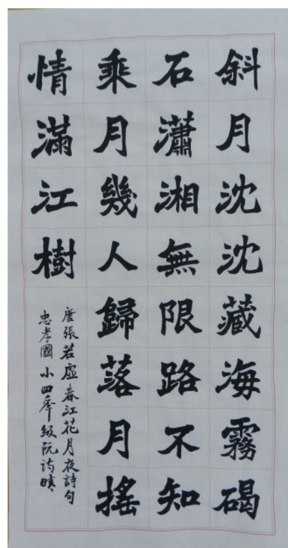 斜月沈沈藏海霧碣
石瀟湘無限路不知
乘月幾人歸落月搖
情滿江樹
唐張若虛春江花月夜詩句
忠孝國小四年級阮詩晴